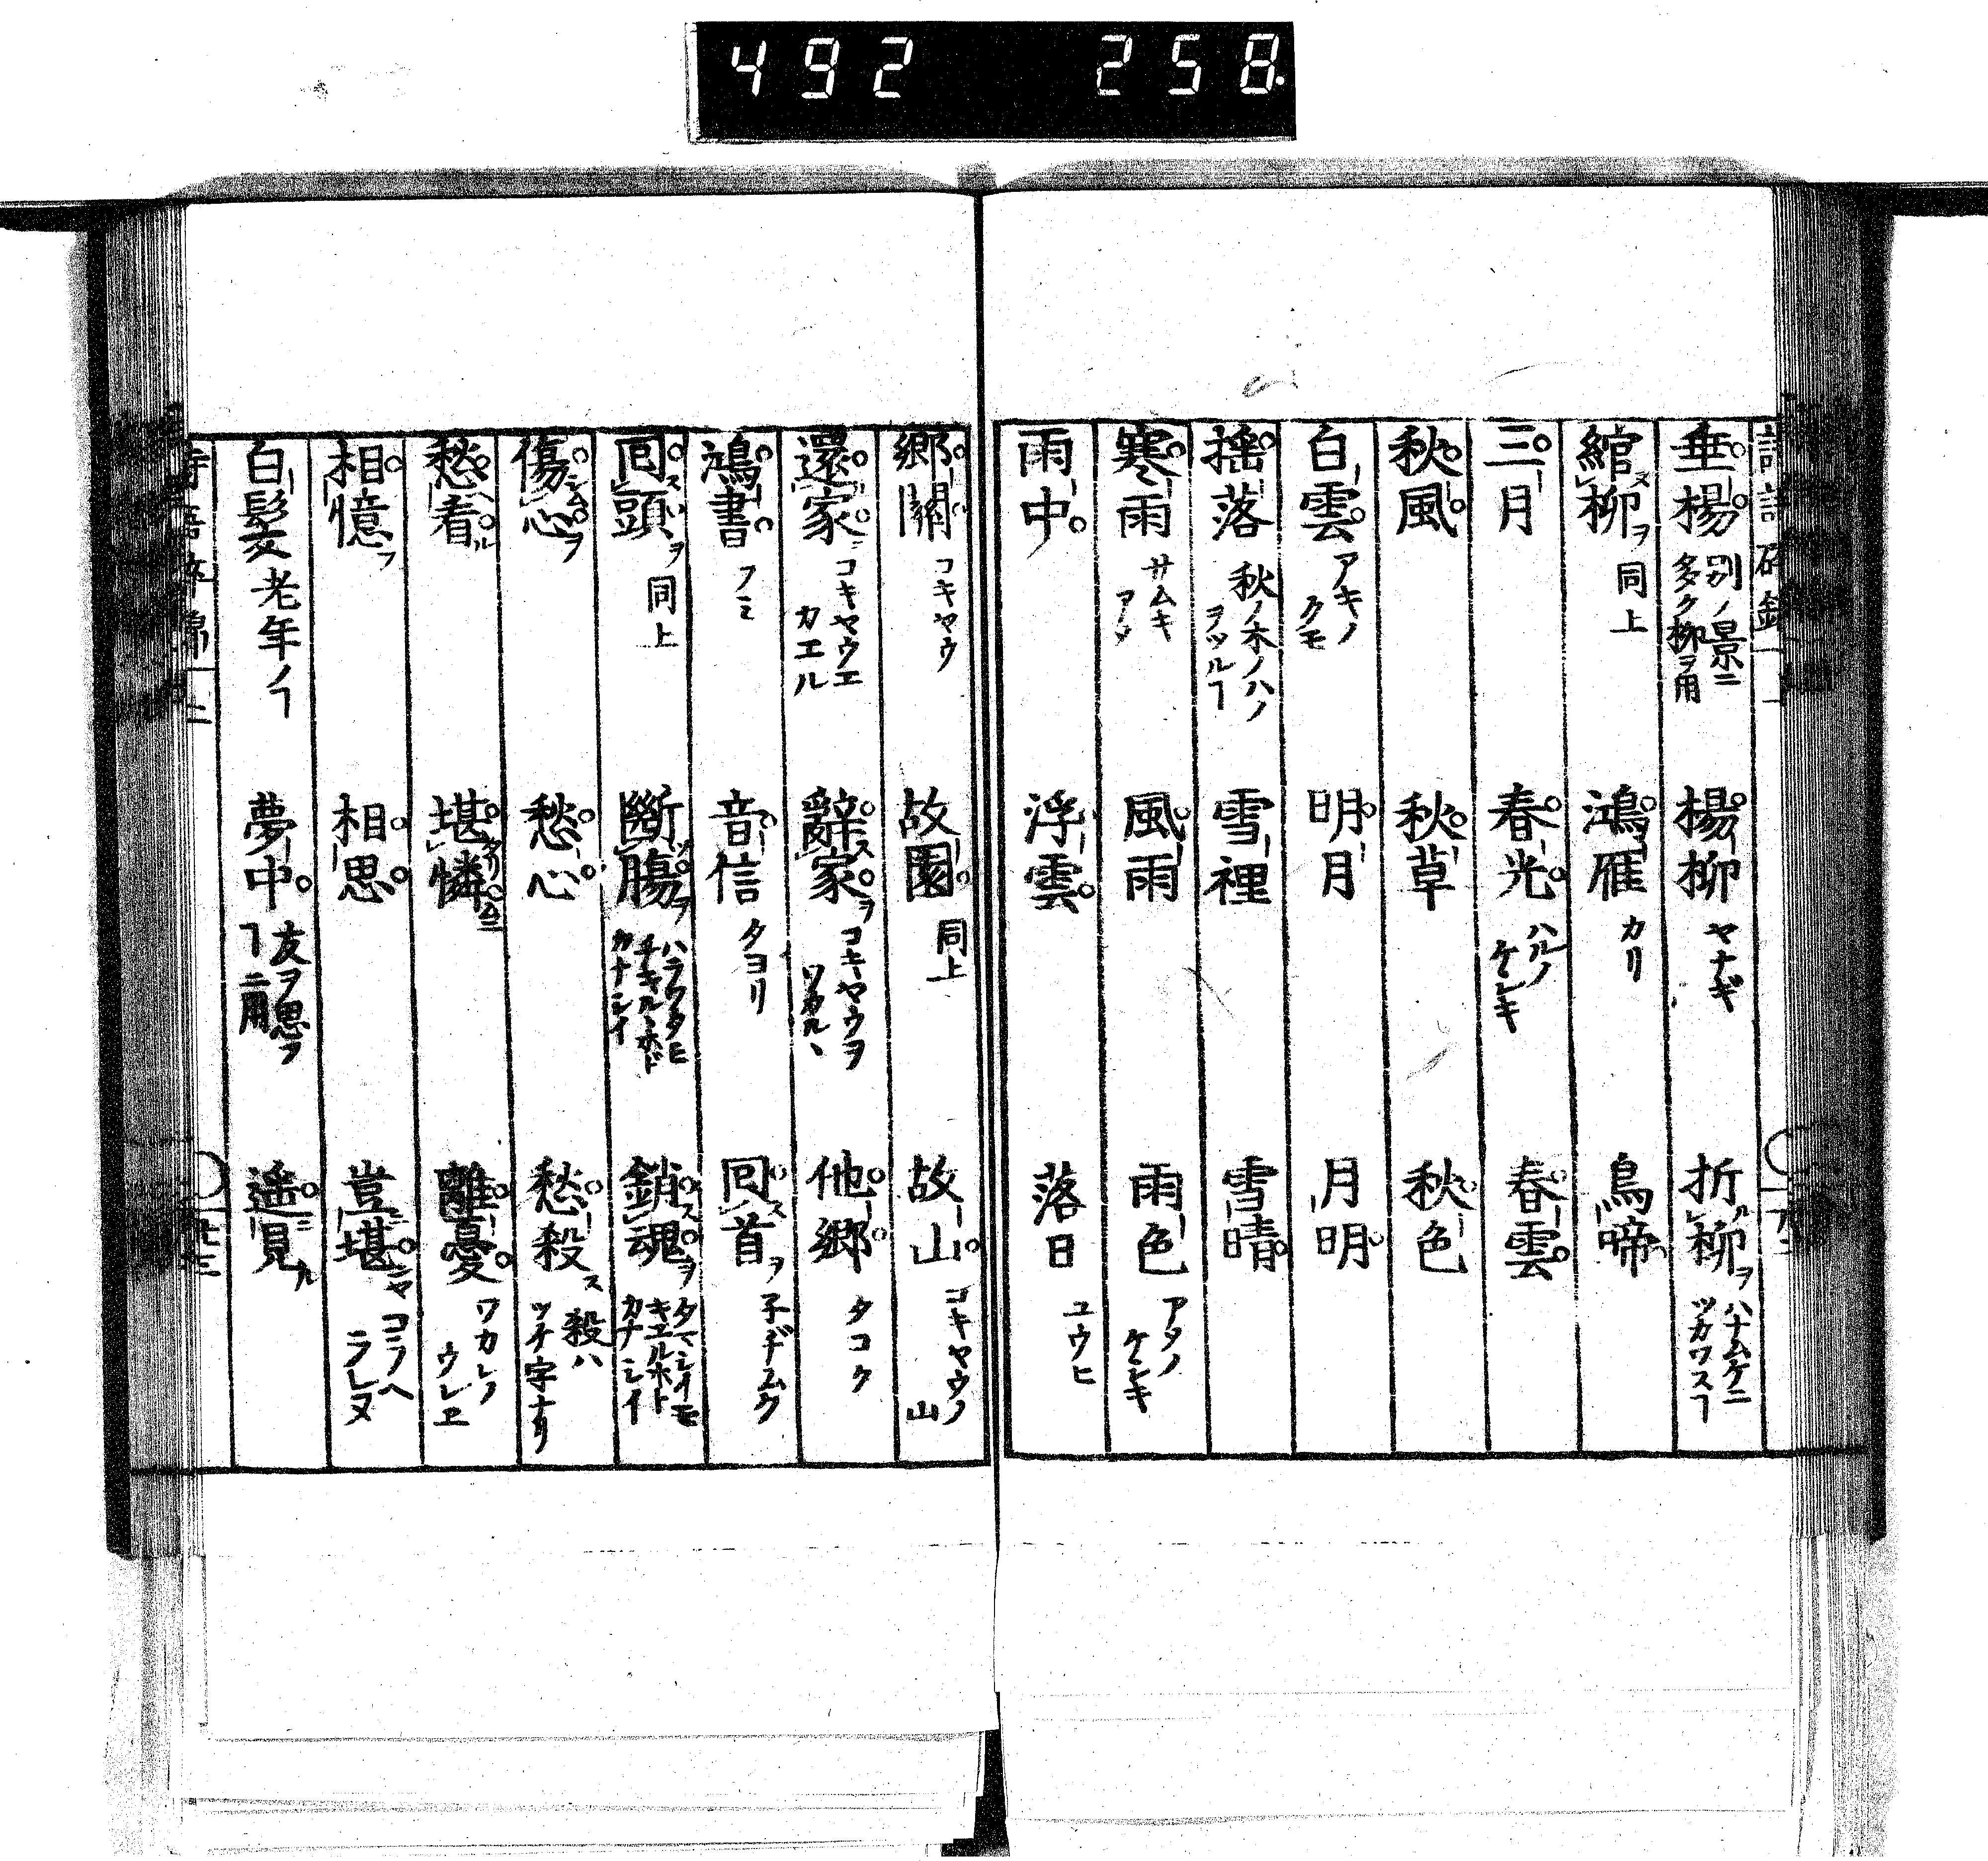 492 258
垂楊 別ノ景ニ多ク柳ヲ用 楊柳 ヤナギ 折柳ヲ ハナムケニツカワスヿ
綰柳ヲ 同上 鴻雁 カリ 鳥啼
三月 春光 ハルノケシキ 春雲
秋風 秋草 秋色
白雲 アキノクモ 明月 月明
揺落 秋ノ木ノハノヲツルヿ 雪裡 雪晴
寒雨 サムキアメ 風雨 雨色 アメノケシキ
雨中 浮雲 落日 ユウヒ
郷關 コキヤウ 故園 同上 故山 コキヤウノ山
還家ニ コキヤウエカエル 辭家ヲ コキヤウヲワカルヽ 他郷 タコク
鴻書 フミ 音信 タヨリ 回首ヲ 子ヂムク
回頭ヲ 同上 斷腸ヲ ハラワタモチキルヽホドカナシイ 銷魂ヲ タマシイモキエルホトカナシイ
傷心ヲ 愁心 愁殺ス 殺ハツケ字ナリ
愁看ル 堪憐 離憂 ワカレノウレエ
相憶フ 相思 豈堪ンヤ コラヘラレヌ
白髪 老年ノヿ 夢中 友ヲ思フヿニ用 遥見ル